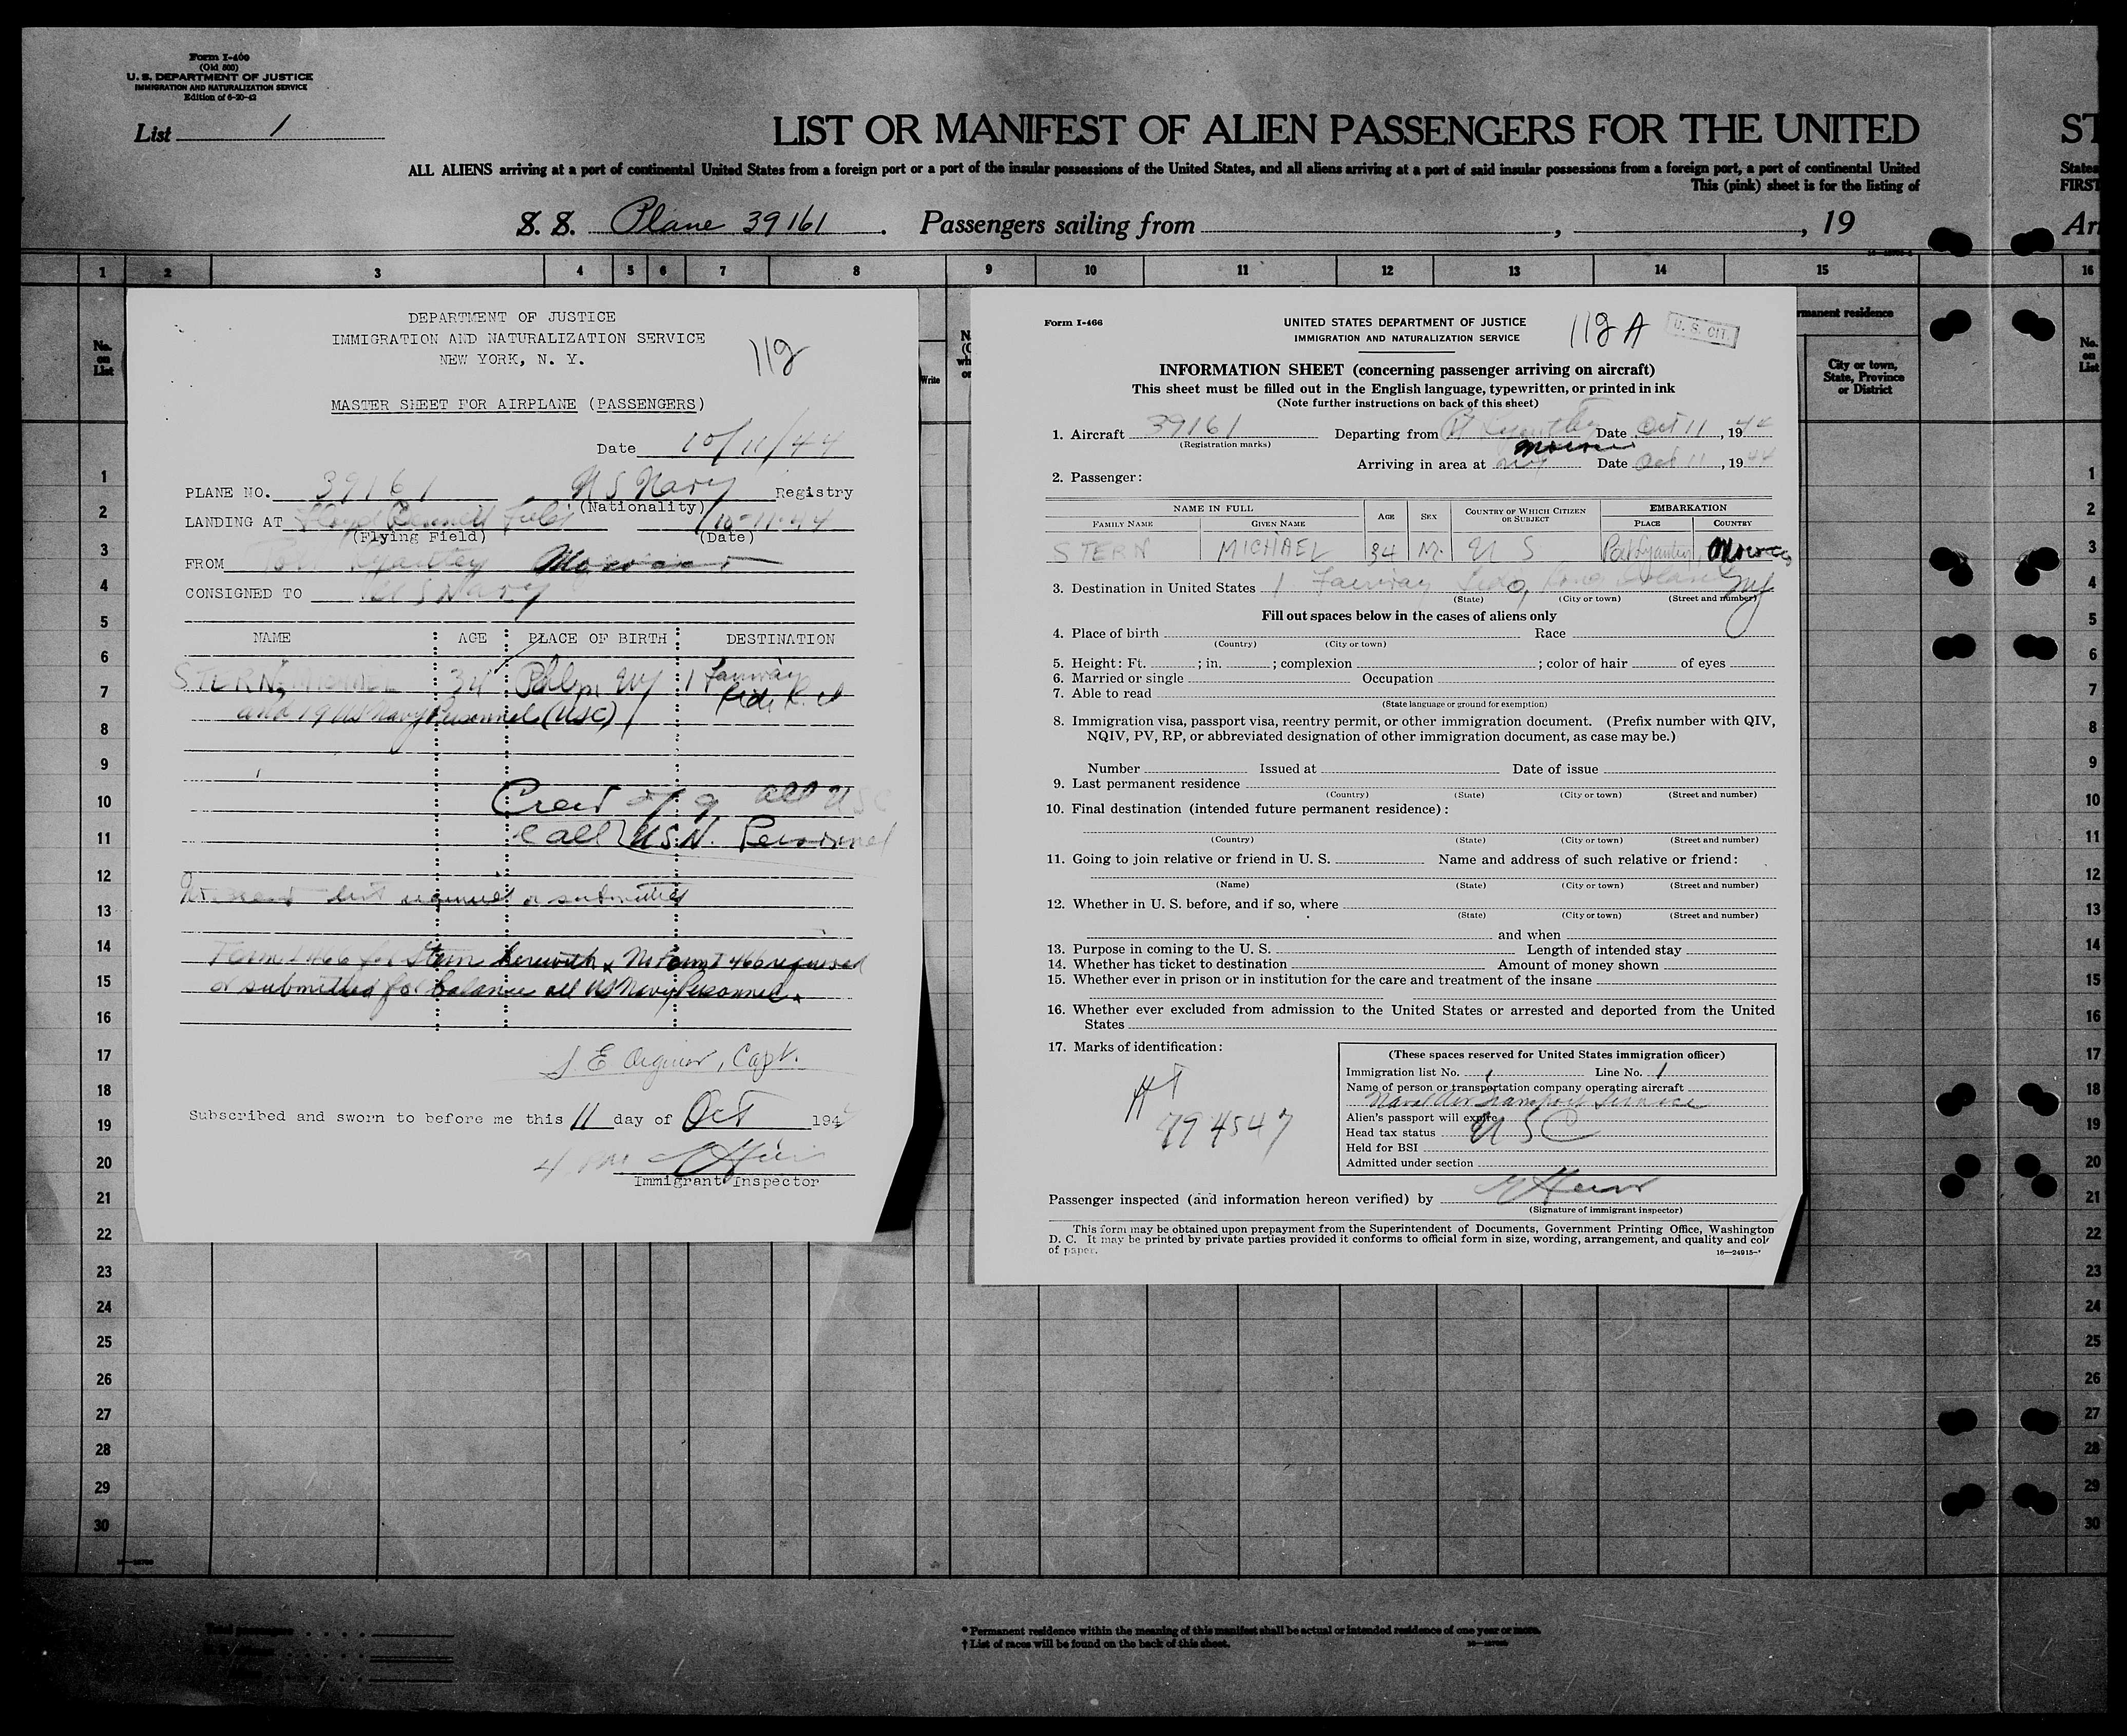 Form I-400
(Old 500)
U. S. DEPARTMENT OF JUSTICE
IMMIGRATION AND NATURALIZATION SERVICE
Edition of 6-20-42
List 1
LIST OR MANIFEST OF ALIEN PASSENGERS FOR THE UNITED
ST
ALL ALIENS arriving at a port of continental United States from a foreign port or a port of the insular possessions of the United States, and all aliens arriving at a port of said insular possessions from a foreign port, a port of continental United
States
This (pink) sheet is for the listing of
FIRST
S. S. Plane 39161. Passengers sailing from , , 19
Arr
1 2 3 4 5 6 7 8 9 10 11 12 13 14 15 16
No. on List
Write
rmanent residence
City or town, State, Province or District
No. on List
DEPARTMENT OF JUSTICE
IMMIGRATION AND NATURALIZATION SERVICE
NEW YORK, N. Y.
118
MASTER SHEET FOR AIRPLANE (PASSENGERS)
Date 10/11/44
PLANE NO. 39161 U S Navy Registry
(Nationality)
LANDING AT Floyd Bennett Field 10-11-44
(Flying Field) (Date)
FROM Port Lyautey Morocco
CONSIGNED TO U S Navy
NAME AGE PLACE OF BIRTH DESTINATION
STERN, MICHAEL 34 Bklyn NY 1 Fairway
Lido, L. I.
and 19 US Navy Personnel (USC)
Crew of 9 all USC
all USN. Personnel
No crew list required or submitted
Form I 466 for Stern herewith. No Form I 466 required
or submitted for balance all US Navy Personnel.
Capt.
Subscribed and sworn to before me this 11 day of Oct 194
4 PM
Immigrant Inspector
Form I-466
UNITED STATES DEPARTMENT OF JUSTICE
IMMIGRATION AND NATURALIZATION SERVICE
118 A
U. S. CIT.
INFORMATION SHEET (concerning passenger arriving on aircraft)
This sheet must be filled out in the English language, typewritten, or printed in ink
(Note further instructions on back of this sheet)
1. Aircraft 39161 Departing from Pt Lyautey Date Oct 11, 1944
(Registration marks)
Morocco
Arriving in area at NY Date Oct 11, 1944
2. Passenger:
NAME IN FULL AGE SEX COUNTRY OF WHICH CITIZEN OR SUBJECT EMBARKATION
FAMILY NAME GIVEN NAME PLACE COUNTRY
STERN MICHAEL 34 M. U S Port Lyautey Morocco
3. Destination in United States 1 Fairway Lido, Long Island NY
(State) (City or town) (Street and number)
Fill out spaces below in the cases of aliens only
4. Place of birth Race
(Country) (City or town)
5. Height: Ft. ; in. ; complexion ; color of hair of eyes
6. Married or single Occupation
7. Able to read
(State language or ground for exemption)
8. Immigration visa, passport visa, reentry permit, or other immigration document. (Prefix number with QIV,
NQIV, PV, RP, or abbreviated designation of other immigration document, as case may be.)
Number Issued at Date of issue
9. Last permanent residence
(Country) (State) (City or town) (Street and number)
10. Final destination (intended future permanent residence):
(Country) (State) (City or town) (Street and number)
11. Going to join relative or friend in U. S. Name and address of such relative or friend:
(Name) (State) (City or town) (Street and number)
12. Whether in U. S. before, and if so, where
(State) (City or town) (Street and number)
and when
13. Purpose in coming to the U. S. Length of intended stay
14. Whether has ticket to destination Amount of money shown
15. Whether ever in prison or in institution for the care and treatment of the insane
16. Whether ever excluded from admission to the United States or arrested and deported from the United
States
17. Marks of identification:
794547
(These spaces reserved for United States immigration officer)
Immigration list No. 1 Line No. 1
Name of person or transportation company operating aircraft
Naval Air Transport Service
Alien's passport will expire
Head tax status USC
Held for BSI
Admitted under section
Passenger inspected (and information hereon verified) by
(Signature of immigrant inspector)
This form may be obtained upon prepayment from the Superintendent of Documents, Government Printing Office, Washington
D. C. It may be printed by private parties provided it conforms to official form in size, wording, arrangement, and quality and col
of paper.
16—24915-
1
2
3
4
5
6
7
8
9
10
11
12
13
14
15
16
17
18
19
20
21
22
23
24
25
26
27
28
29
30
Total passengers
* Permanent residence within the meaning of this manifest shall be actual or intended residence of one year or more.
† List of races will be found on the back of this sheet.